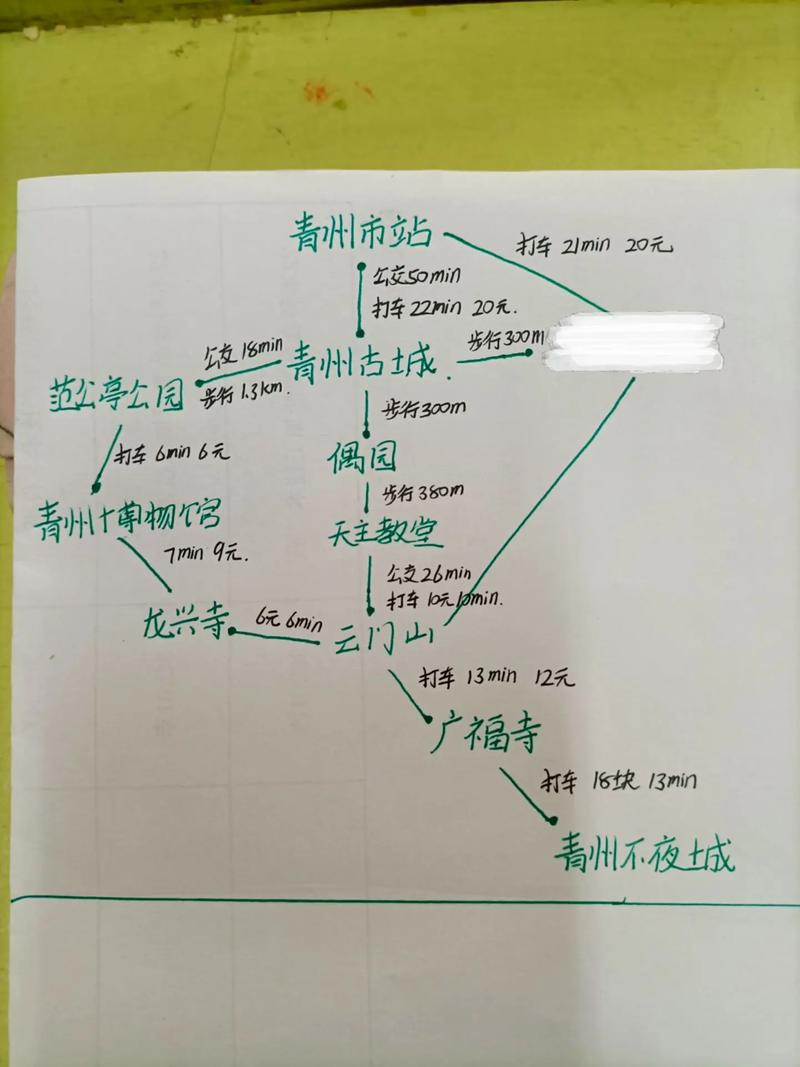 青州市站
打车 21min 20元
公交50min
打车22min 20元.
公交 18min
青州古城
步行300m
范公亭公园
步行1.3km.
步行300m
打车 6min 6元
偶园
步行380m
青州博物馆
天主教堂
7min 9元.
公交26min
打车10元10min.
龙兴寺
6元 6min
云门山
打车 13min 12元
广福寺
打车 18块 13min
青州不夜城